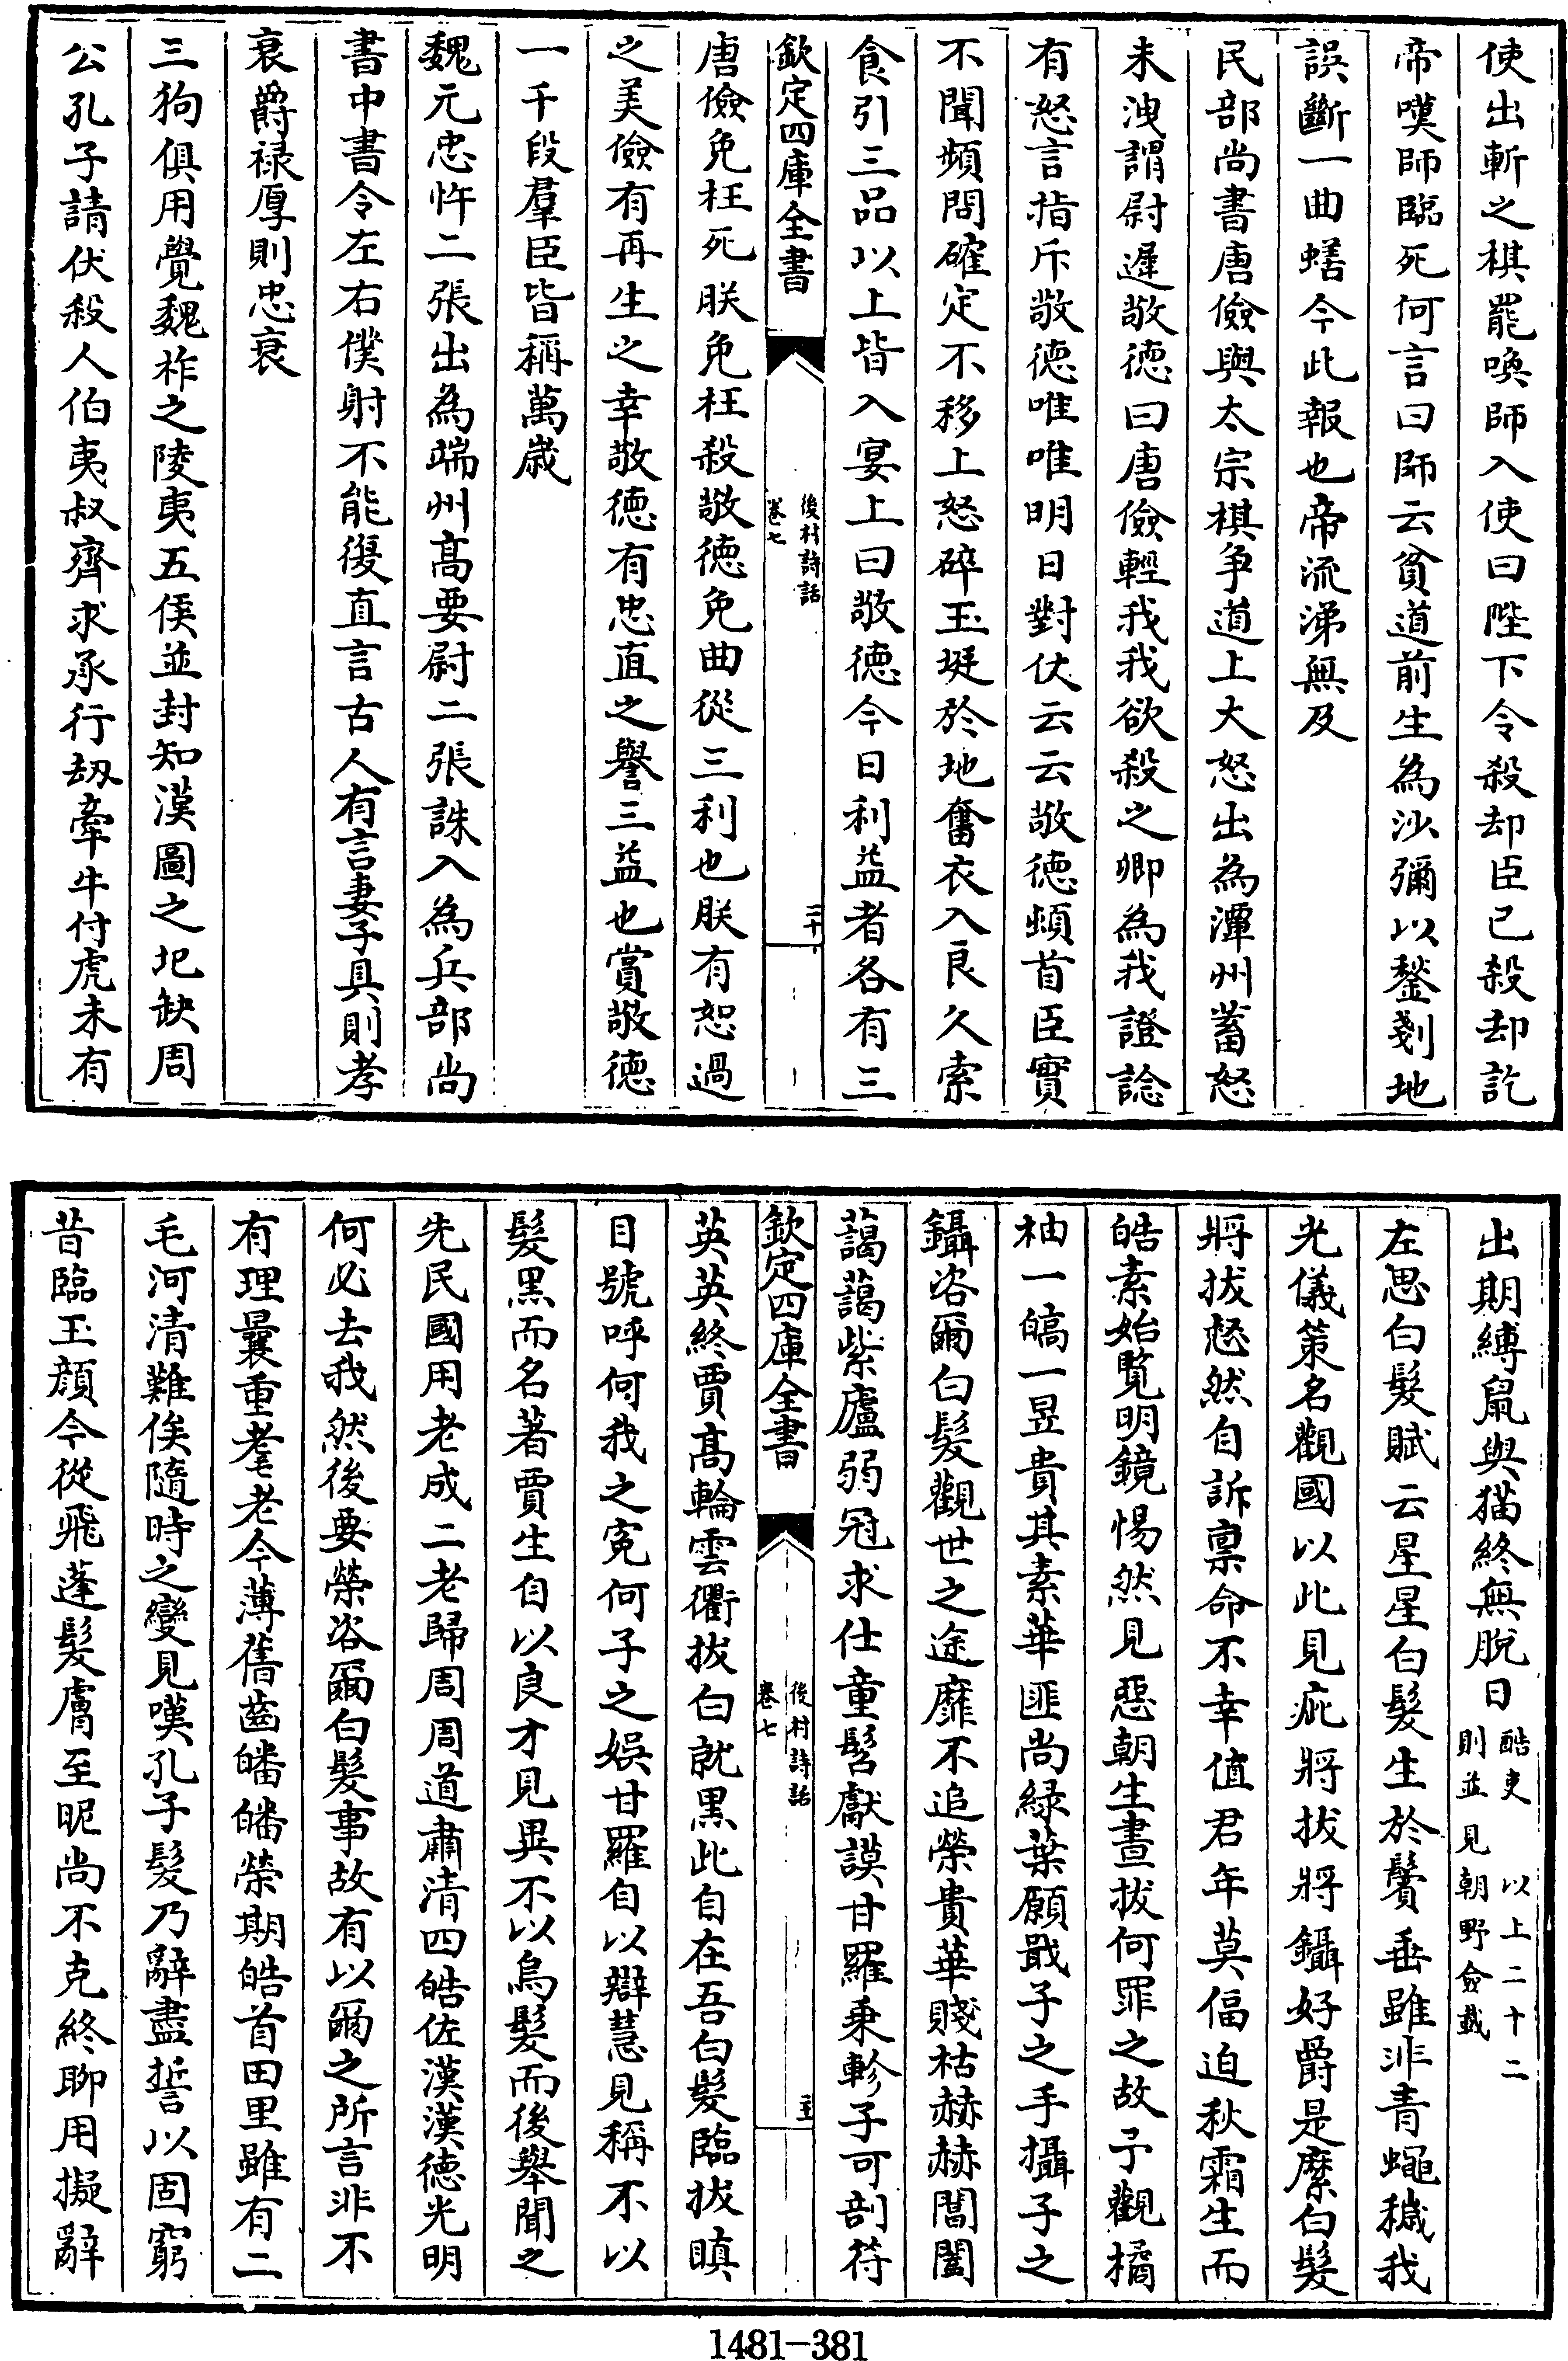 使出斬之棋罷喚師入使曰陛下令殺却臣已殺却訖
帝嘆師臨死何言曰師云貧道前生為沙彌以鏊剗地
誤斷一曲蟮今此報也帝流涕無及
民部尚書唐儉與太宗棋争道上大怒出為潭州蓄怒
未洩謂尉遲敬德曰唐儉輕我我欲殺之卿為我證諗
有怒言指斥敬德唯唯明日對仗云云敬德頻首臣實
不聞頻問確定不移上怒碎玉珽於地奮衣入良久索
食引三品以上皆入宴上曰敬德今日利益者各有三
欽定四庫全書
後村詩話
卷七
二十
唐儉免枉死朕免枉殺敬德免曲從三利也朕有恕過
之美儉有再生之幸敬德有忠直之譽三益也賞敬德
一千段羣臣皆稱萬歲
魏元忠忤二張出為端州髙要尉二張誅入為兵部尚
書中書令左右僕射不能復直言古人有言妻子具則孝
衰爵禄厚則忠衰
三狗俱用覺魏祚之陵夷五侯並封知漢圖之圯缺周
公孔子請伏殺人伯夷叔齊求承行刼牽牛付虎未有
出期縛鼠與猫終無脫日 酷吏 以上二十二
則並見朝野僉載
左思白髮賦 云星星白髮生於鬢垂雖非青蠅穢我
光儀策名觀國以此見疵將拔將鑷好爵是縻白髮
將拔惄然自訴禀命不幸值君年莫偪迫秋霜生而
皓素始覽明鏡惕然見惡朝生晝拔何罪之故予觀橘
柚一皜一昱貴其素華匪尚緑葉願戢子之手攝子之
鑷咨爾白髮觀世之途靡不追榮貴華賤枯赫赫閶闔
藹藹紫廬弱冠求仕童髫獻謨甘羅乗軫子可剖符
欽定四庫全書
後村詩話
卷七
二十一
英英終賈髙輪雲衢拔白就黑此自在吾白髮臨拔瞋
目號呼何我之寃何子之娛甘羅自以辯慧見稱不以
髮黑而名著賈生自以良才見異不以烏髮而後舉聞之
先民國用老成二老歸周周道肅清四皓佐漢漢德光明
何必去我然後要榮咨爾白髮事故有以爾之所言非不
有理曩重耄老今薄舊齒皤皤榮期皓首田里雖有二
毛河清難俟隨時之變見嘆孔子髮乃辭盡誓以固窮
昔臨玉顏今從飛蓬髮膚至昵尚不克終聊用擬辭
1481-381